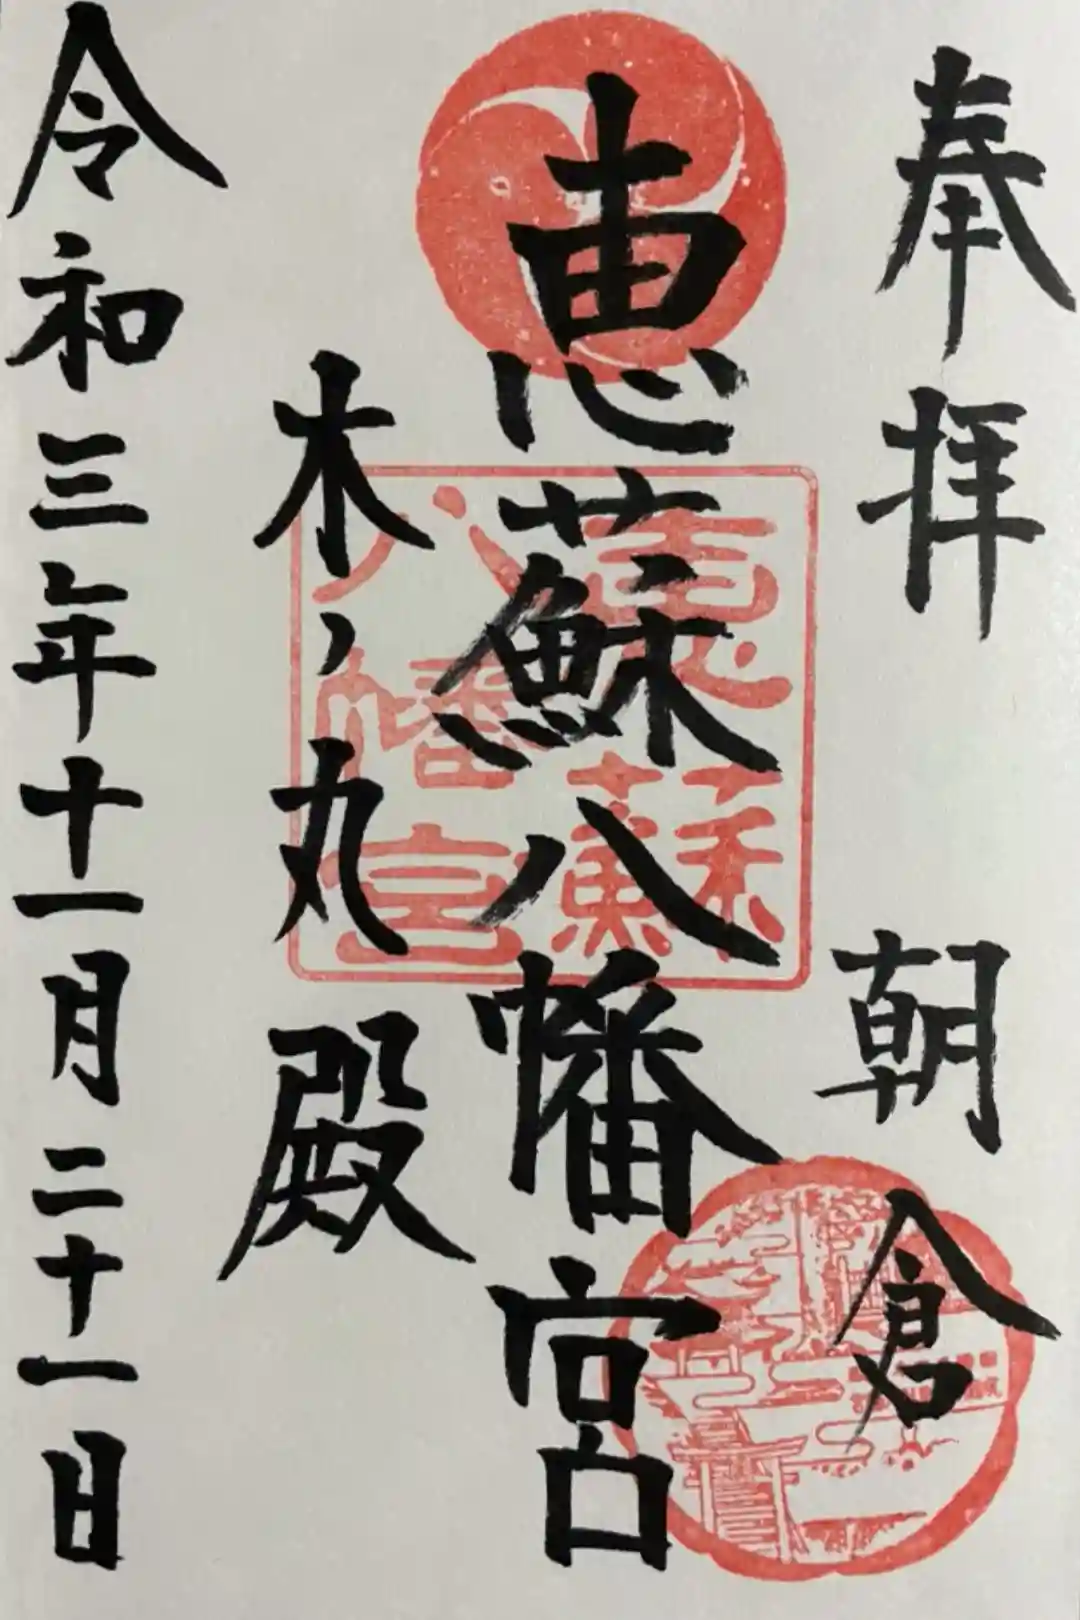 奉拝 朝倉
恵蘇八幡宮
恵蘇
八幡宮
木ノ丸殿
令和三年十一月二十一日